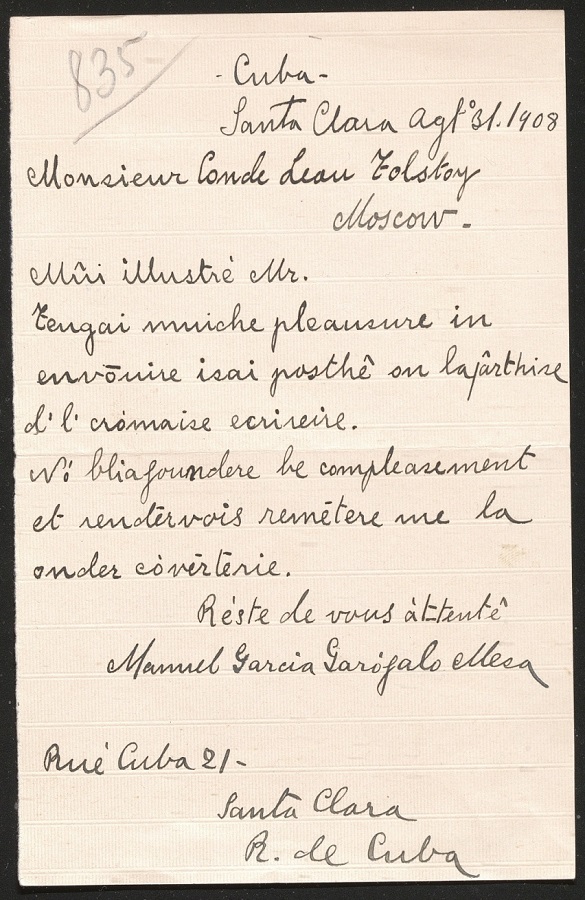 835
- Cuba -
Santa Clara Agto 31. 1908
Monsieur Conde Leau Tolstoy
Moscow -
Mûi illustré Mr.
Tengai muiche pleausure in
envōuire isai posthê on la pârthise
d' l' crómaise ecrireire.
Nó bliagoundere be compleasement
et rendērvois remētere me la
onder còvērtērie.
Réste de vous àttentê
Manuel Garcia Garófalo Mesa
Rué Cuba 21 -
Santa Clara
R. de Cuba